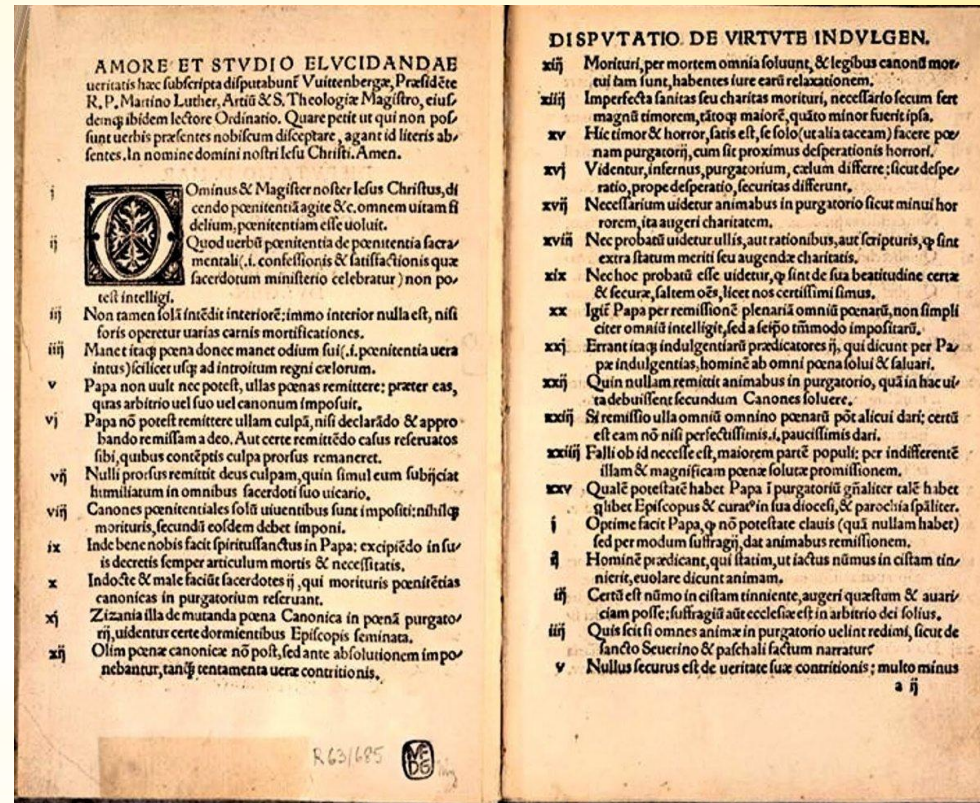 AMORE ET STVDIO ELVCIDANDAE
ueritatis hæc subscripta disputabunt̃ Vuittenbergæ, Præsidẽte
R. P. Martino Luther, Artiũ & S. Theologiæ Magistro, eius-
demq; ibidem lectore Ordinatio. Quare petit ut qui non pos-
sunt uerbis præsentes nobiscum disceptare, agant id literis ab-
sentes. In nomine domini nostri Iesu Christi. Amen.
i Ominus & Magister noster Iesus Christus, di
cendo pœnitentiã agite &c. omnem uitam fi
delium, pœnitentiam esse uoluit.
ij Quod uerbũ pœnitentia de pœnitentia sacra-
mentali (.i. confessionis & satisfactionis quæ
sacerdotum ministerio celebratur) non po-
test intelligi.
iij Non tamen solã intẽdit interiorẽ: immo interior nulla est, nisi
foris operetur uarias carnis mortificationes.
iiij Manet itaq; pœna donec manet odium sui (.i. pœnitentia uera
intus) scilicet usq; ad introitum regni cælorum.
v Papa non uult nec potest, ullas pœnas remittere: præter eas,
quas arbitrio uel suo uel canonum imposuit.
vj Papa nõ potest remittere ullam culpã, nisi declarãdo & appro
bando remissam a deo. Aut certe remittẽdo casus reseruatos
sibi, quibus contẽptis culpa prorsus remaneret.
vij Nulli prorsus remittit deus culpam, quin simul eum subijciat
humiliatum in omnibus sacerdoti suo uicario.
viij Canones pœnitentiales solũ uiuentibus sunt impositi: nihilq;
morituris, secundũ eosdem debet imponi.
ix Inde bene nobis facit spiritussanctus in Papa: excipiẽdo in su-
is decretis semper articulum mortis & necessitatis.
x Indocte & male faciũt sacerdotes ij, qui morituris pœnitẽtias
canonicas in purgatorium reseruant.
xj Zizania illa de mutanda pœna Canonica in pœnã purgato-
rij, uidentur certe dormientibus Episcopis seminata.
xij Olim pœnæ canonicæ nõ post, sed ante absolutionem impo-
nebantur, tanq̃ tentamenta ueræ contritionis.
R 63/685
DISPVTATIO DE VIRTVTE INDVLGEN.
xiij Morituri, per mortem omnia soluunt, & legibus canonũ mor-
tui iam sunt, habentes iure earũ relaxationem.
xiiij Imperfecta sanitas seu charitas morituri, necessario secum fert
magnũ timorem, tãtoq; maiorẽ, quãto minor fuerit ipsa.
xv Hic timor & horror, satis est, se solo (ut alia taceam) facere pœ-
nam purgatorij, cum sit proximus desperationis horrori.
xvj Videntur, infernus, purgatorium, cælum differre: sicut despe-
ratio, prope desperatio, securitas differunt.
xvij Necessarium uidetur animabus in purgatorio sicut minui hor
rorem, ita augeri charitatem.
xviij Nec probatũ uidetur ullis, aut rationibus, aut scripturis, ꝙ sint
extra statum meriti seu augendæ charitatis.
xix Nec hoc probatũ esse uidetur, ꝙ sint de sua beatitudine certæ
& securæ, saltem oẽs, licet nos certissimi simus.
xx Igit̃ Papa per remissionẽ plenariã omniũ pœnarũ, non simpli
citer omniũ intelligit, sed a seipo tm̃modo impositarũ.
xxj Errant itaq; indulgentiarũ prædicatores ij, qui dicunt per Pa-
pæ indulgentias, hominẽ ab omni pœna solui & saluari.
xxij Quin nullam remittit animabus in purgatorio, quã in hac ui-
ta debuissent secundum Canones soluere.
xxiij Si remissio ulla omniũ omnino pœnarũ põt alicui dari: certũ
est eam nõ nisi perfectissimis .i. paucissimis dari.
xxiiij Falli ob id necesse est, maiorem partẽ populi: per indifferentẽ
illam & magnificam pœnæ solutæ promissionem.
xxv Qualẽ potestatẽ habet Papa ĩ purgatoriũ gñaliter talẽ habet
q̃libet Episcopus & curat⁹ in sua diocesi, & parochia sp̃aliter.
i Optime facit Papa, ꝙ nõ potestate clauis (quã nullam habet)
sed per modum suffragij, dat animabus remissionem.
ij Hominẽ prædicant, qui statim, ut iactus nũmus in cistam tin-
nierit, euolare dicunt animam.
iij Certũ est nũmo in cistam tinniente, augeri quæstum & auari-
ciam posse: suffragiũ aũt ecclesiæ est in arbitrio dei solius.
iiij Quis scit si omnes animæ in purgatorio uelint redimi, sicut de
sancto Seuerino & paschali factum narratur?
v Nullus securus est de ueritate suæ contritionis: multo minus
a ij